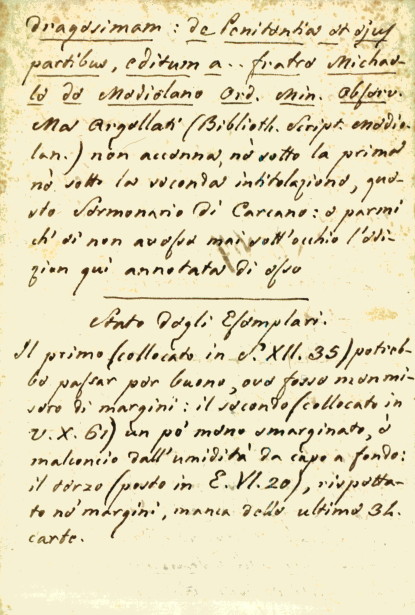 dragesimam: de Penitentia et ejus
partibus, editum a.. fratre Michae-
le de Mediolano Ord. Min. Observ.
Ma Argellati (Biblioth. Script. Medio-
lan.) non accenna, nè sotto la prima
nè sotto la seconda intitolazione, que-
sto Sermonario di Carcano: e parmi
ch'ei non avesse mai sott'occhio l'edi-
zion quì annotata di esso
Stato degli Esemplari.
Il primo (collocato in S. XII. 35) potreb-
be passar per buono, ove fosse men mi-
sero di margini: il secondo (collocato in
V. X. 61) un pò meno smarginato, è
malconcio dall'umidità da capo a fondo:
il terzo (posto in E. VI. 20), rispetta-
to ne' margini, manca delle ultime 34.
carte.